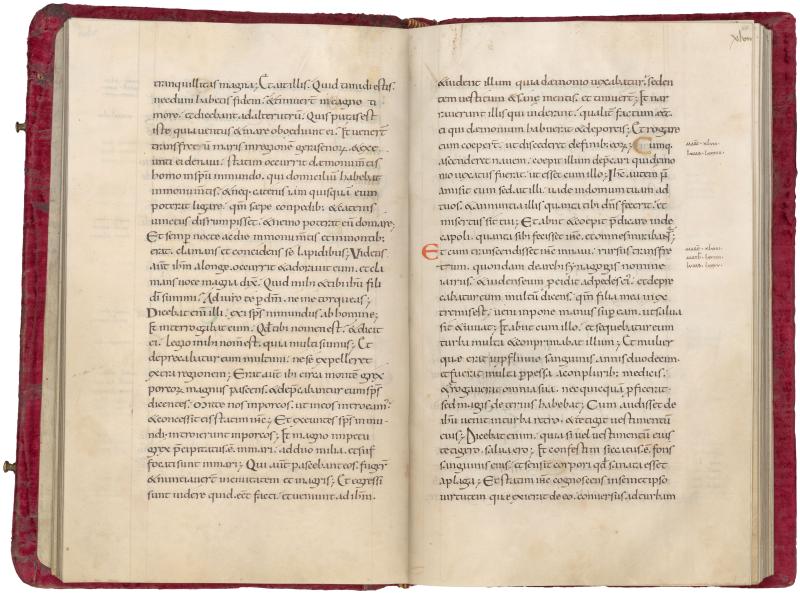 tranquillitas magna; Et ait illis. Quid timidi estis.
necdum habetis fidem. &timuer̄t magno ti
more. et dicebant. ad alterutrū. Quis putas est
iste. quia uentus &mare oboediunt ei. Et uener̄t
trans fretū maris in regionē gerasenorū. &exe
unti ei de naui. statim occurrit de monumentis
homo in spū inmundo. qui domiciliū habebat
in monumentis. &neq; catenis iam quisquā eum
poterat ligare. qm̄ sepe conpedib; &catenis
uinctus disrumpisset. &nemo poterat eū domare;
Et semp nocte ac die in monumentis et in montib;
erat. clamans et concidens se lapidibus; Videns
aut̄ ihm̄ a longe. occurrit &adorauit eum. et cla
mans uoce magna dix̄. Quid mihi &tibi ihū fili
dī summi. Adiuro te p dm̄. ne me torqueas;
Dicebat eni illi. exi sps̄ inmundus ab homine;
Et interrogabat eum. Qd̄ tibi nomen est. &dicit
ei. legio mihi nom̄ est. quia multi sumus; Et
deprecabatur eum multum. ne se expelleret
extra regionem; Erat aut̄ ibi circa montē grex
porcorū magnus pascens. &dep̄cabantur eum sps̄
dicentes. Mitte nos in porcos. ut in eos introeam;
&concessit eis statim ihc̄; Et exeuntes sps̄ inmu
ndi. introierunt in porcos; Et magno impetu
grex p̄cipitatus ē. in mari. ad duo milia. et suf
focati sunt in mari; Qui aut̄ pascebant eos. fuger̄
&nunciauer̄t in ciuitatem et in agris; Et egressi
sunt uidere quid eēt facti. et ueniunt ad ihm̄.
xlviii
&uident illum qui a daemonio uexabatur. seden
tem uestitum &sane mentis. et timuer̄t; Et nar
rauerunt illis qui uiderant. qualit̄ factum eēt
ei qui daemonium habuerat &de porcis; Et rogare
eum coeper̄t. ut discederet de finib; eorū; Cumq;
ascenderet nauem. coepit illum dep̄cari qui demo
nio uexatus fuerat. ut esset cum illo; Ihc̄ aut̄ n̄ p
amisit eum. sed ait illi. uade in domum tuam ad
tuos. &annuntia illis quanta tibi dn̄s fecerit. et
misertus sit tui; Et abiit &coepit p̄dicare in de
capoli. quanta sibi fecisset ihc̄. et omnes mirabant̄;
Et cum transcendisset ihc̄ in naui. rursus trans fre
tum. quondam de archisynagogis nomine
iairus. &uidens eum procidit ad pedes ei;. et depre
cabatur eum multū dicens. qm̄ filia mea in ex
tremis est. ueni inpone manus sup eam. ut salua
sit &uiuat; Et abiit cum illo. et sequebatur eum
turba multa &conprimabat illum; Et mulier
quae erat in p̄fluuio sanguinis. annis duodecim.
et fuerat multa p̄pessa. a conplurib; medicis.
&rogauerat omnia sua. nec quicquā p̄ficerat.
sed magis deterius habebat; Cum audisset de
ihū. uenit in turba retro. &tetigit uestimentū
eius; Dicebat enim. quia si uel uestimentū eius
tetigero. salua ero; Et confestim siccatus ē. fons
sanguinis eius. et sensit corpori qd̄ sanata esset
a plaga; Et statim ihc̄ cognoscens in semet ipso
uirtutem que exierat de eo. conuersus ad turbam